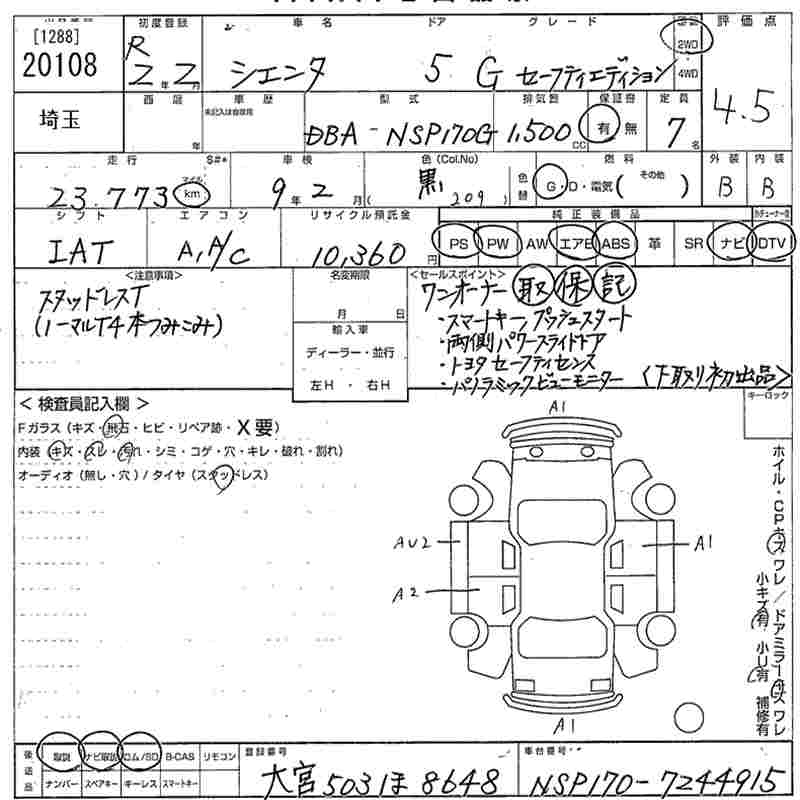 [1288]
20108
初度登録 車名 ドア グレード 評価点
R 2年 2月 シエンタ 5 G セーフティエディション 2WD 4WD 4.5
埼玉
西暦 車歴 型式 排気量 保証書 定員
年 未記入は自家用 DBA-NSP170G 1,500CC 有 無 7名
走行 S#* 車検 色(Col.No) 燃料 外装 内装
23.773 マイル km 9年 2月 黒 (209) 色替 G・D・電気 ( その他 ) B B
シフト エアコン リサイクル預託金 純正装備品
IAT A,A/C 10,360円 PS PW AW エアB ABS 革 SR ナビ DTV
<注意事項> 名変期限 <セールスポイント>
スタッドレスT
(ノーマルT4本つみこみ)
月 日
輸入車
ディーラー・並行
左H ・ 右H
ワンオーナー 取 保 記
・スマートキー、プッシュスタート
・両側パワースライドドア
・トヨタセーフティセンス
・パノラミックビューモニター <下取り初出品>
キーロック
<検査員記入欄>
Fガラス(キズ・飛石・ヒビ・リペア跡・X要)
内装(キズ・スレ・汚れ・シミ・コゲ・穴・キレ・破れ・割れ)
オーディオ(無し・穴)/タイヤ(スタッドレス)
A1
AU2
A2
A1
A1
ホイル・CPキズ ワレ/ドアミラーキズ ワレ
小キズ有 小U有 補修有
後送品 取説 ナビ取説 ロム/SD B-CAS リモコン
ナンバー スペアキー キーレス スマートキー
登録番号
大宮 503 ほ 8648
車台番号
NSP170-7244915